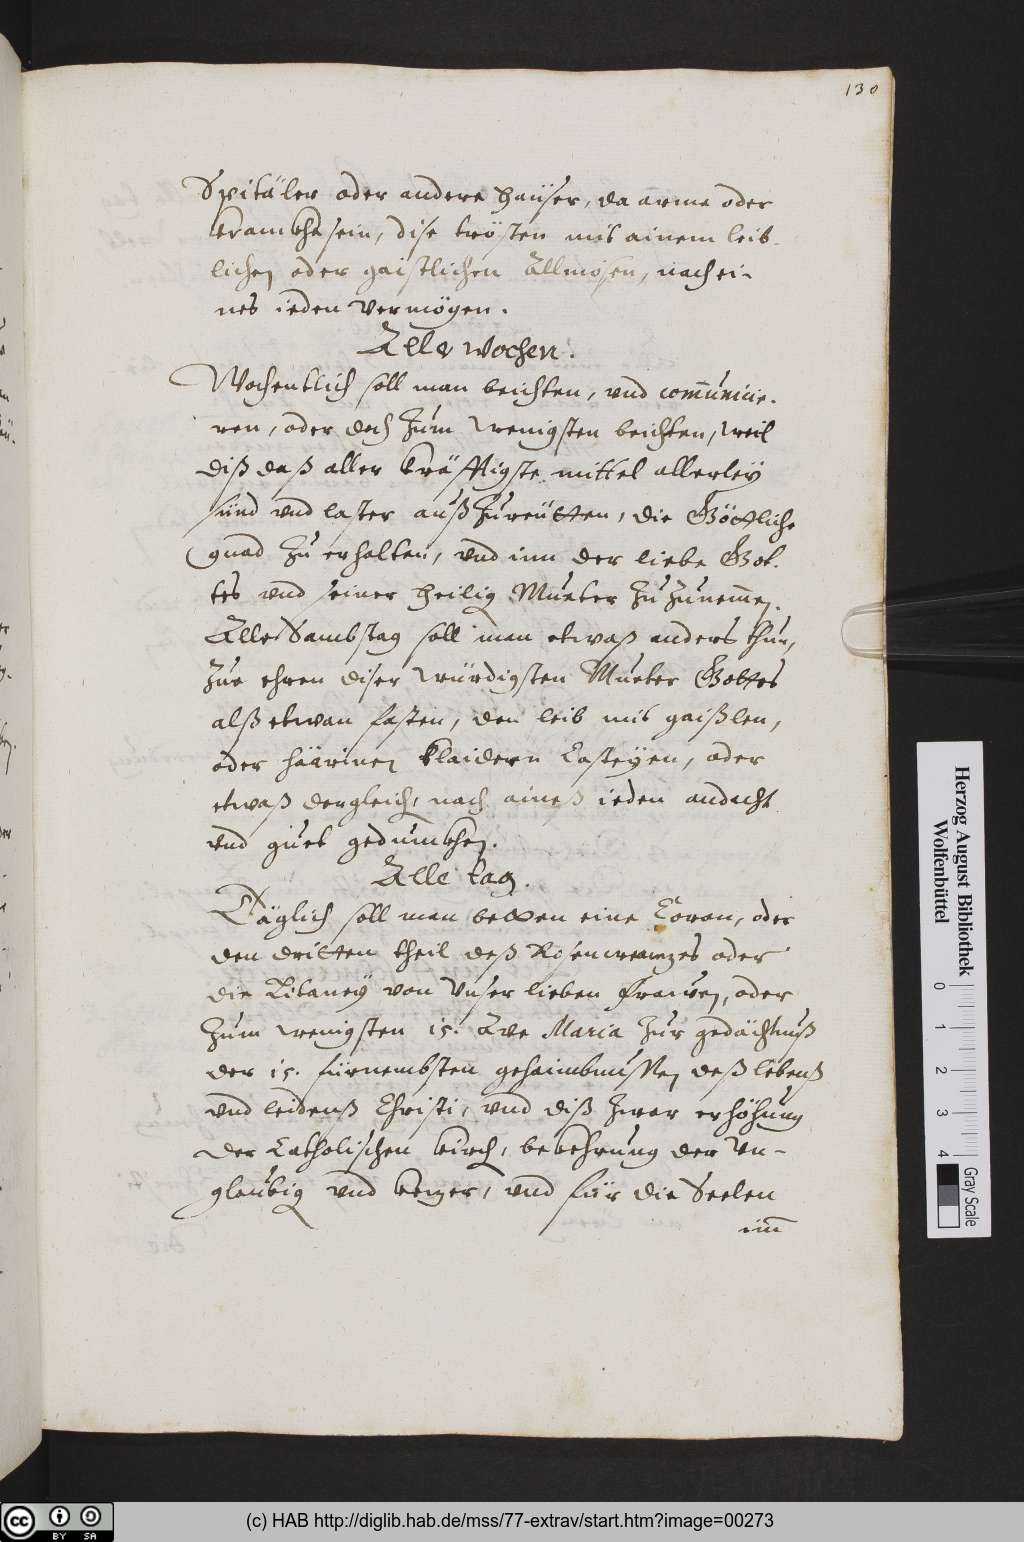 130
Spitäler oder andere häuser, da arme oder
kranckhe sein, dise trösten mit ainem leib-
lichen oder gaistlichen Allmosen, nach ei-
nes ieden vermögen.
Alle wochen.
Wochentlich soll man beichten, vnd com̄unicie-
ren, oder doch zum wenigsten beichten, weil
diß daß aller kräfftigste mittel allerleÿ
sünd vnd laster außzureütten, die Göttliche
gnad zu erhalten, vnd inn der liebe Got-
tes vnd seiner heilig Mueter zuzunem̄en.
Alle Sambstag soll man etwaß anders thun,
zue ehren diser würdigsten Mueter Gottes
alß etwan fasten, den leib mit gaißlen,
oder häärinen klaidern Casteÿen, oder
etwaß dergleich, nach aineß ieden andacht
vnd guet gedunckhen.
Alle tag.
Täglich soll man betten eine Coron, oder
den dritten theil deß Rosencrantzes oder
die Litaneÿ von Vnser lieben frawen, oder
zum wenigsten 15. Ave Maria zur gedächtnuß
der 15. fürnembsten gehaimbnussen deß lebenß
vnd leidenß Christi, vnd diß zwar erhöhung
der Catholischen kirch, bekehrung der Vn-
glaubig vnd ketzer, vnd für die Seelen
im̄
Herzog August Bibliothek
Wolfenbüttel
0 1 2 3 4
Gray Scale
cc BY SA
(c) HAB http://diglib.hab.de/mss/77-extrav/start.htm?image=00273